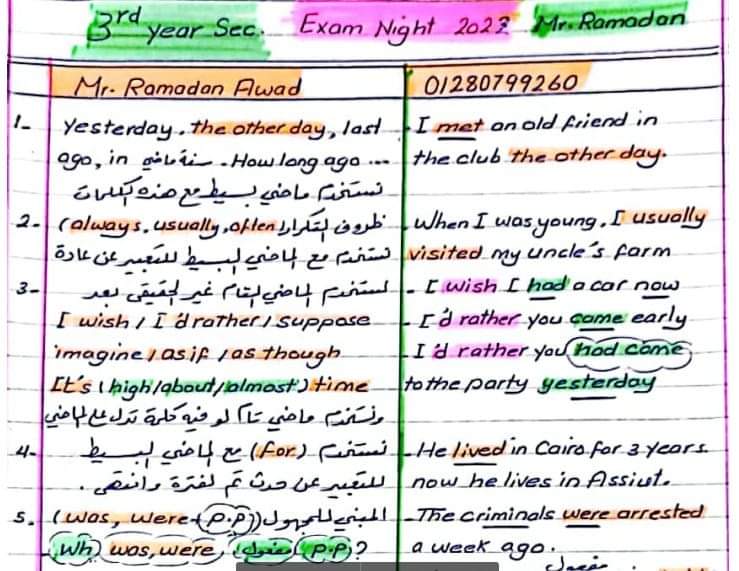 3rd year Sec. Exam Night 2023 Mr. Ramadan
Mr. Ramadan Awad 01280799260
1- Yesterday, the other day, last
ago, in سنة ماضي. How long ago ...
نستخدم ماضي بسيط مع هذه الكلمات
- I met an old friend in
the club the other day.
2- (always, usually, often) ظروف التكرار
نستخدم مع الماضي البسيط للتعبير عن عادة
. When I was young, I usually
visited my uncle's farm
3- نستخدم الماضي التام غير الحقيقي بعد
I wish / I'd rather / suppose
imagine / as if / as though
It's (high/about/almost) time
ونستخدم ماضي تام لو فيه كلمة تدل على الماضي
- I wish I had a car now
- I'd rather you came early
- I'd rather you had come
to the party yesterday
4- نستخدم (for) مع الماضي البسيط
للتعبير عن حدث تم لفترة وانتهى.
- He lived in Cairo for 3 years
now he lives in Assiut.
5. (was, were + p.p) المبني للمجهول
(Wh) was, were, مفعول (p.p)?
- The criminals were arrested
a week ago.
مفعول